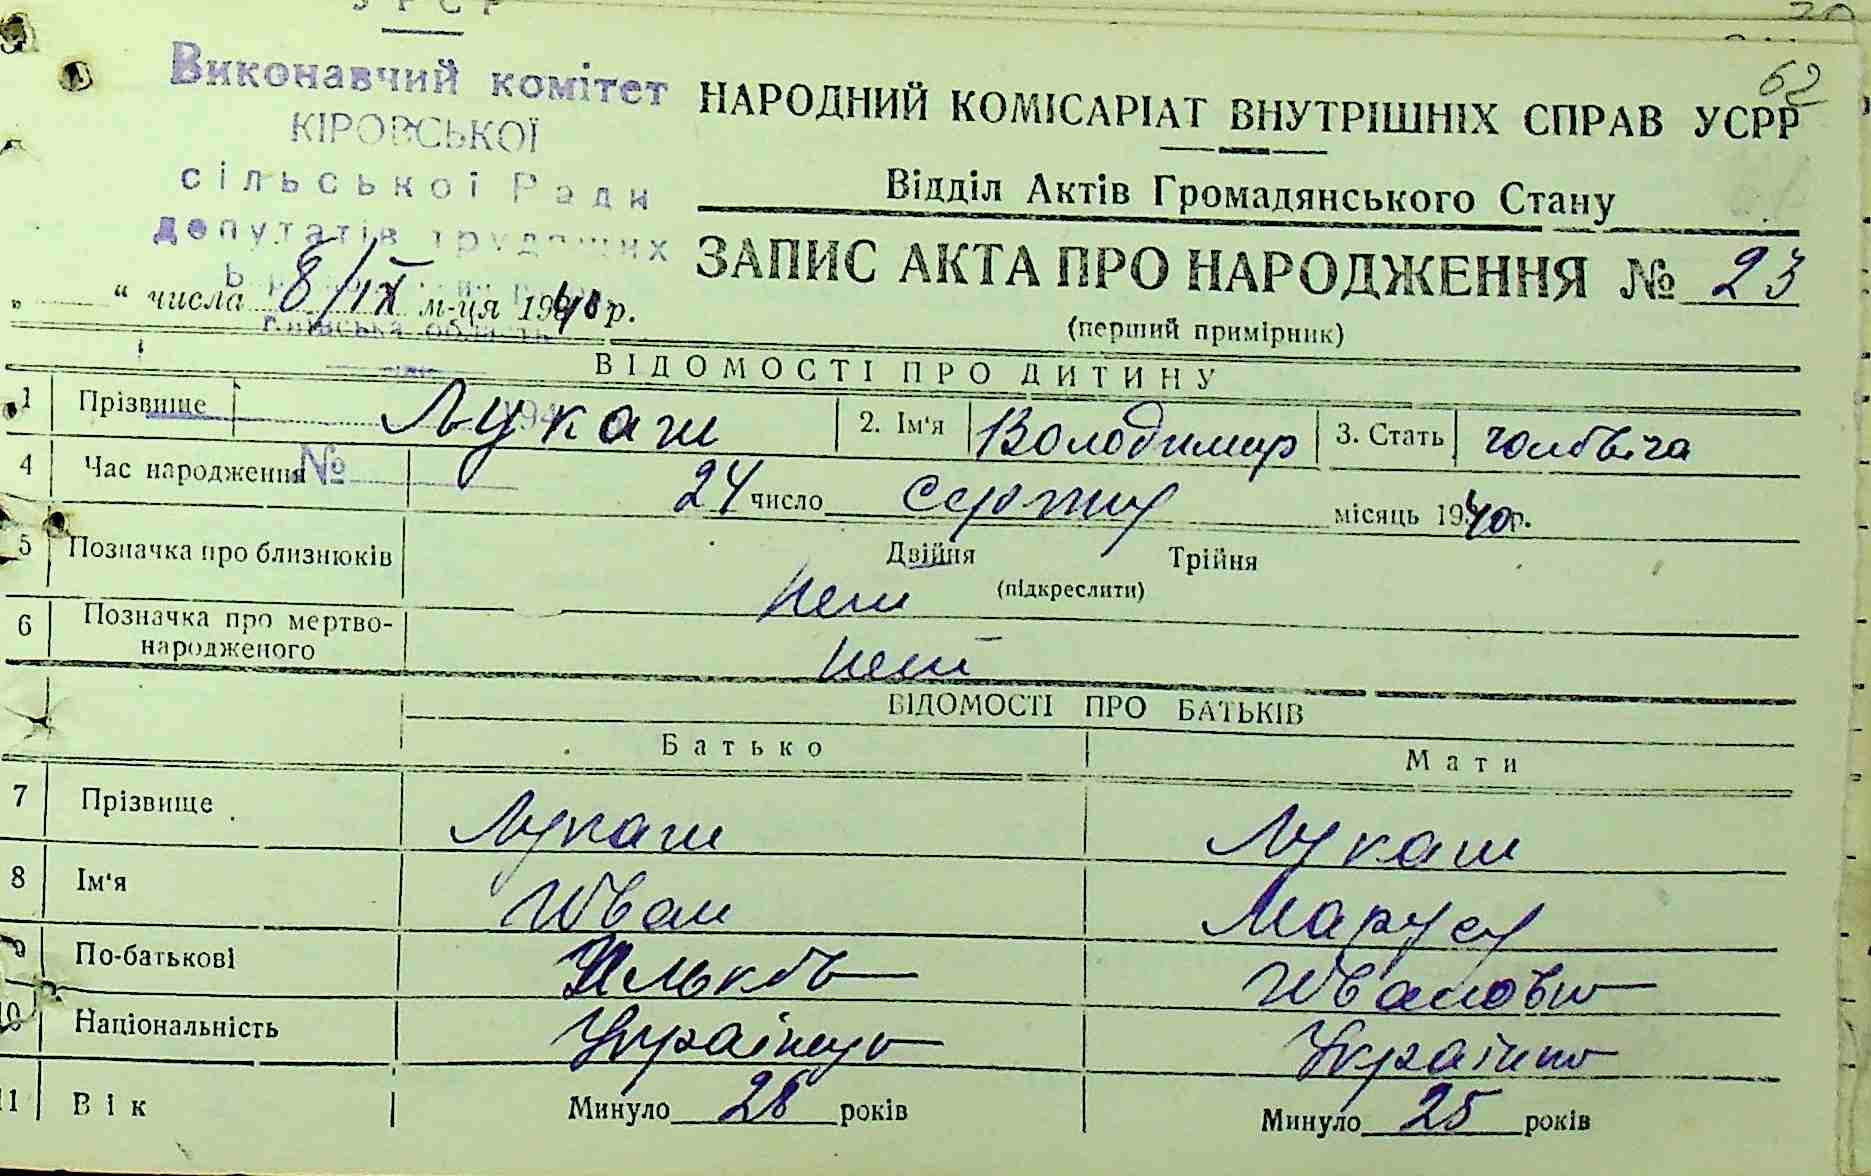 УРСР
Виконавчий комітет
КІРОВСЬКОЇ
сільської Ради
депутатів трудящих
Київська область
62
НАРОДНИЙ КОМІСАРІАТ ВНУТРІШНІХ СПРАВ УСРР
Відділ Актів Громадянського Стану
ЗАПИС АКТА ПРО НАРОДЖЕННЯ № 23
(перший примірник)
„ “ числа 8/IX м-ця 1940 р.
ВІДОМОСТІ ПРО ДИТИНУ
1 Прізвище Лукаш 2. Ім'я Володимир 3. Стать
№
4 Час народження 24 число серпня місяць 1940 р.
5 Позначка про близнюків Двійня Трійня
(підкреслити)
нет
6 Позначка про мертво-
народженого нет
ВІДОМОСТІ ПРО БАТЬКІВ
Батько Мати
7 Прізвище Лукаш Лукаш
8 Ім'я Іван
9 По-батькові
10 Національність
11 Вік Минуло 28 років Минуло 25 років